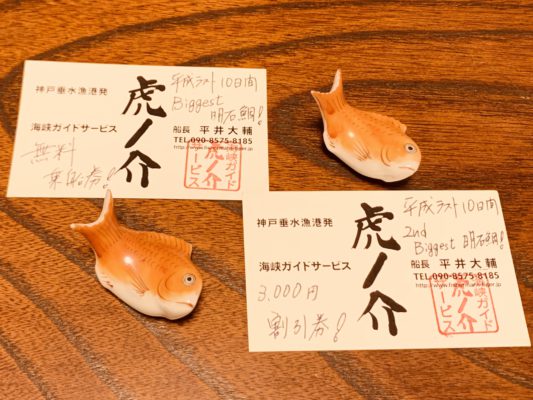 神戸垂水漁港発
海峡ガイドサービス
無料
乗船券!
虎ノ介
平成ラスト10日間
Biggest
明石鯛!
船長 平井大輔
TEL.090-8575-8185
海峡ガイド
虎ノ介
サービス
神戸垂水漁港発
海峡ガイドサービス
3,000円
割引券!
虎ノ介
平成ラスト10日間
2nd
Biggest 明石鯛!
船長 平井大輔
TEL.090-8575-8185
海峡ガイド
虎ノ介
サービス